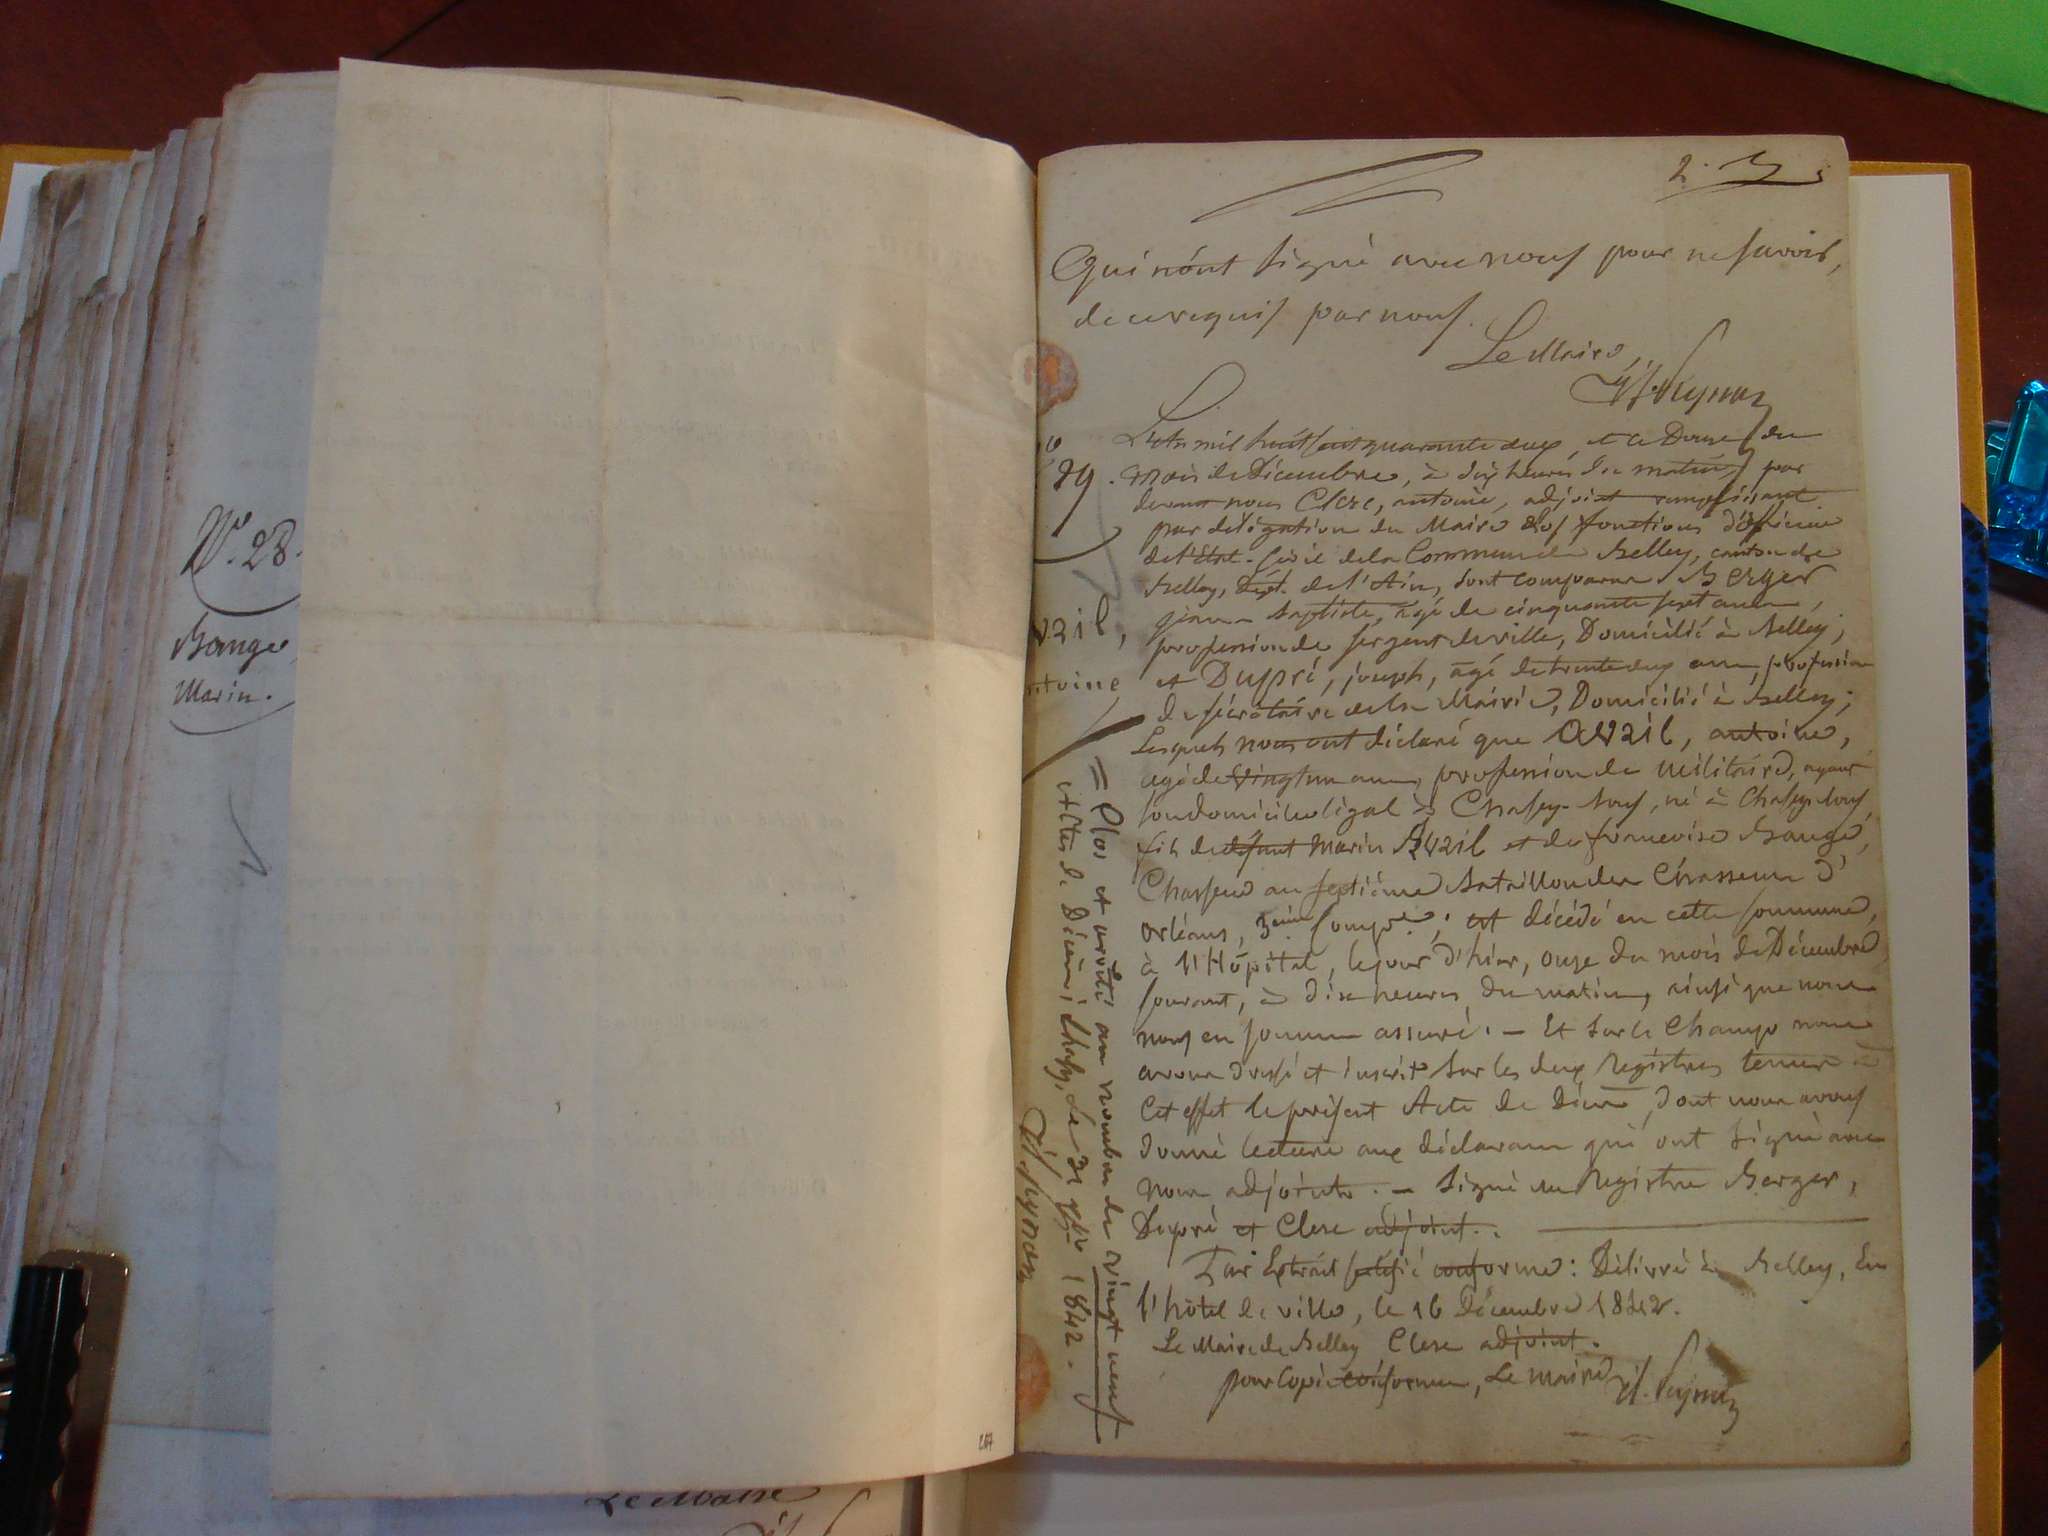 N°. 28.
Bange
Marin.
Le Maire
207
2.
Qui n'ont signé avec nous pour ne savoir,
de ce requis par nous.
Le Maire,
N° 29.
vzil,
ntoine
L'an mil huit cent quarante deux, et le Douze du
mois de Décembre, à dix heures du matin, par
devant nous Clerc, antoine, adjoint remplissant
par délégation du Maire les fonctions d'officier
de l'Etat-Civil de la Commune de Belley, canton de
Belley, Dépt. de l'Ain, sont comparus Berger
jean-baptiste, âgé de cinquante sept ans,
profession de sergent de ville, Domicilié à Belley,
et Dupré, joseph, âgé de trente deux ans, profession
de sécrétaire de la Mairie, Domicilié à Belley;
Lesquels nous ont déclaré que Avzil, antoine,
agé de vingt un ans, profession de militaire, ayant
son domicile légal à Chasey-bons, né à Chasey-bons,
fils de défunt Marin Avzil et de françoise Bange,
Chasseur au septième bataillon des Chasseurs d'
orléans, 3eme Compe.; est décédé en cette Commune,
à l'Hôpital, le jour d'hier, onze du mois de Décembre
Courant, à dix heures du matin, ainsi que nous
nous en sommes assuré. - Et sur le Champ nous
avons dressé et inscrit sur les deux Registres tenus à
Cet effet le présent Acte de Décès, dont nous avons
donné lecture aux déclarans qui ont signé avec
nous adjoint. - Signé au Registre Berger,
Dupré et Clerc adjoint.
Pour Extrait certifié conforme: Délivré à Belley, En
l'hôtel de ville, le 16 Décembre 1842.
Le Maire de Belley Clerc adjoint.
pour Copie conforme, Le maire
= Clos et arrêté au nombre de vingt neuf
Actes de Décès, Le 31 Xbre 1842.